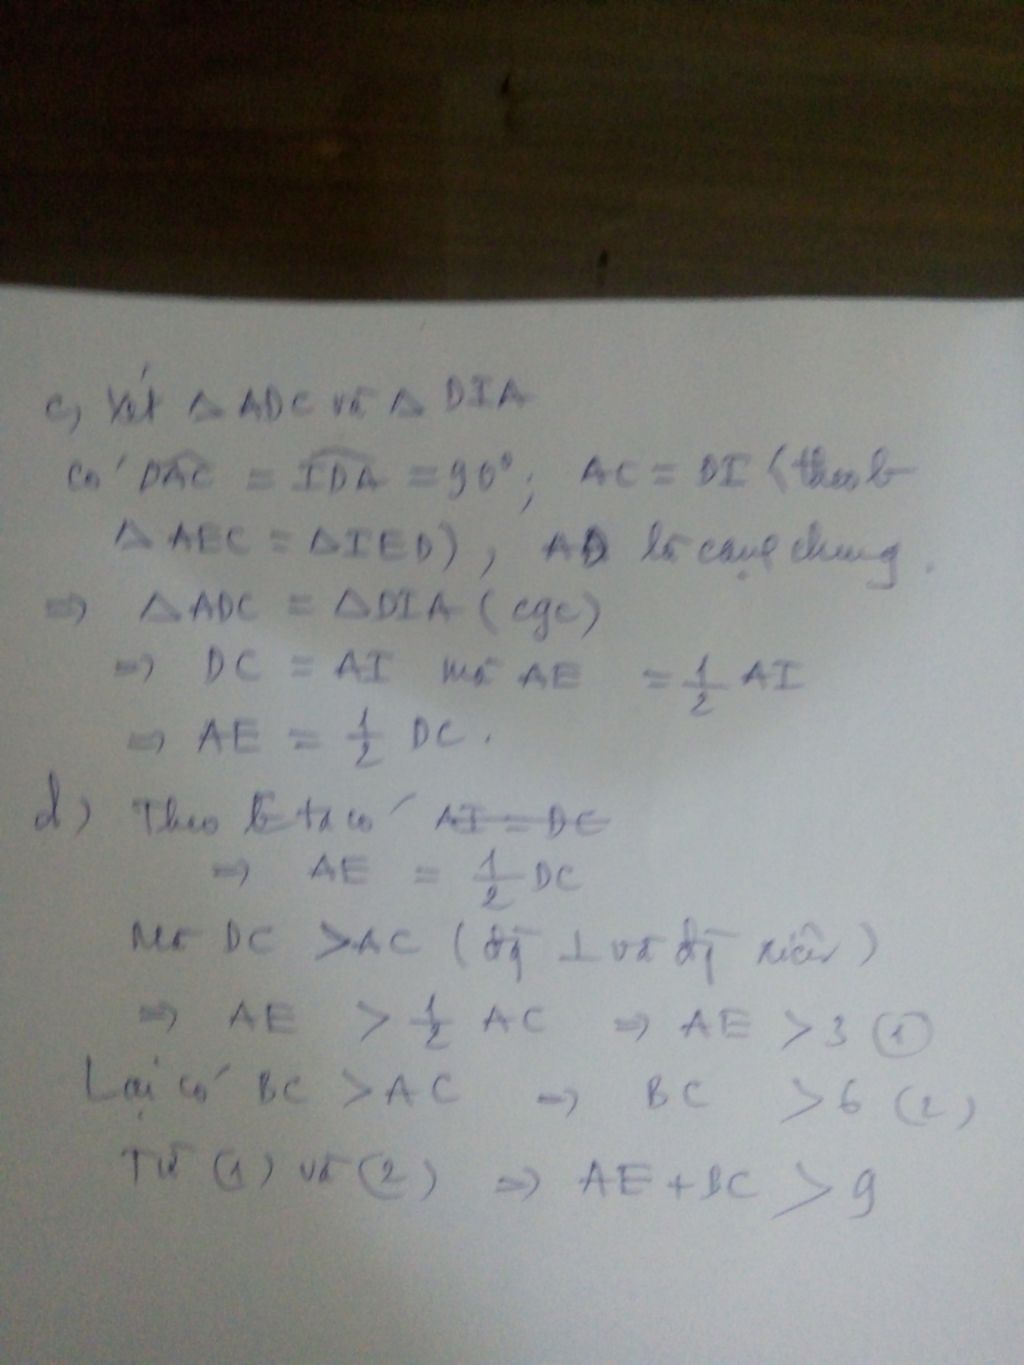 c, Xét △ ADC và △ DIA
Có DAC = IDA = 90°; AC = DI (theo b
△ AEC = △IED), AD là cạnh chung.
=> △ADC = △DIA (cgc)
=> DC = AI mà AE = 1/2 AI
=> AE = 1/2 DC.
d) Theo ta có AI = DC
=> AE = 1/2 DC
Mà DC > AC (đg ⊥ và đg xiên)
=> AE > 1/2 AC => AE > 3 (1)
Lại có BC > AC => BC > 6 (2)
Từ (1) và (2) => AE + BC > 9